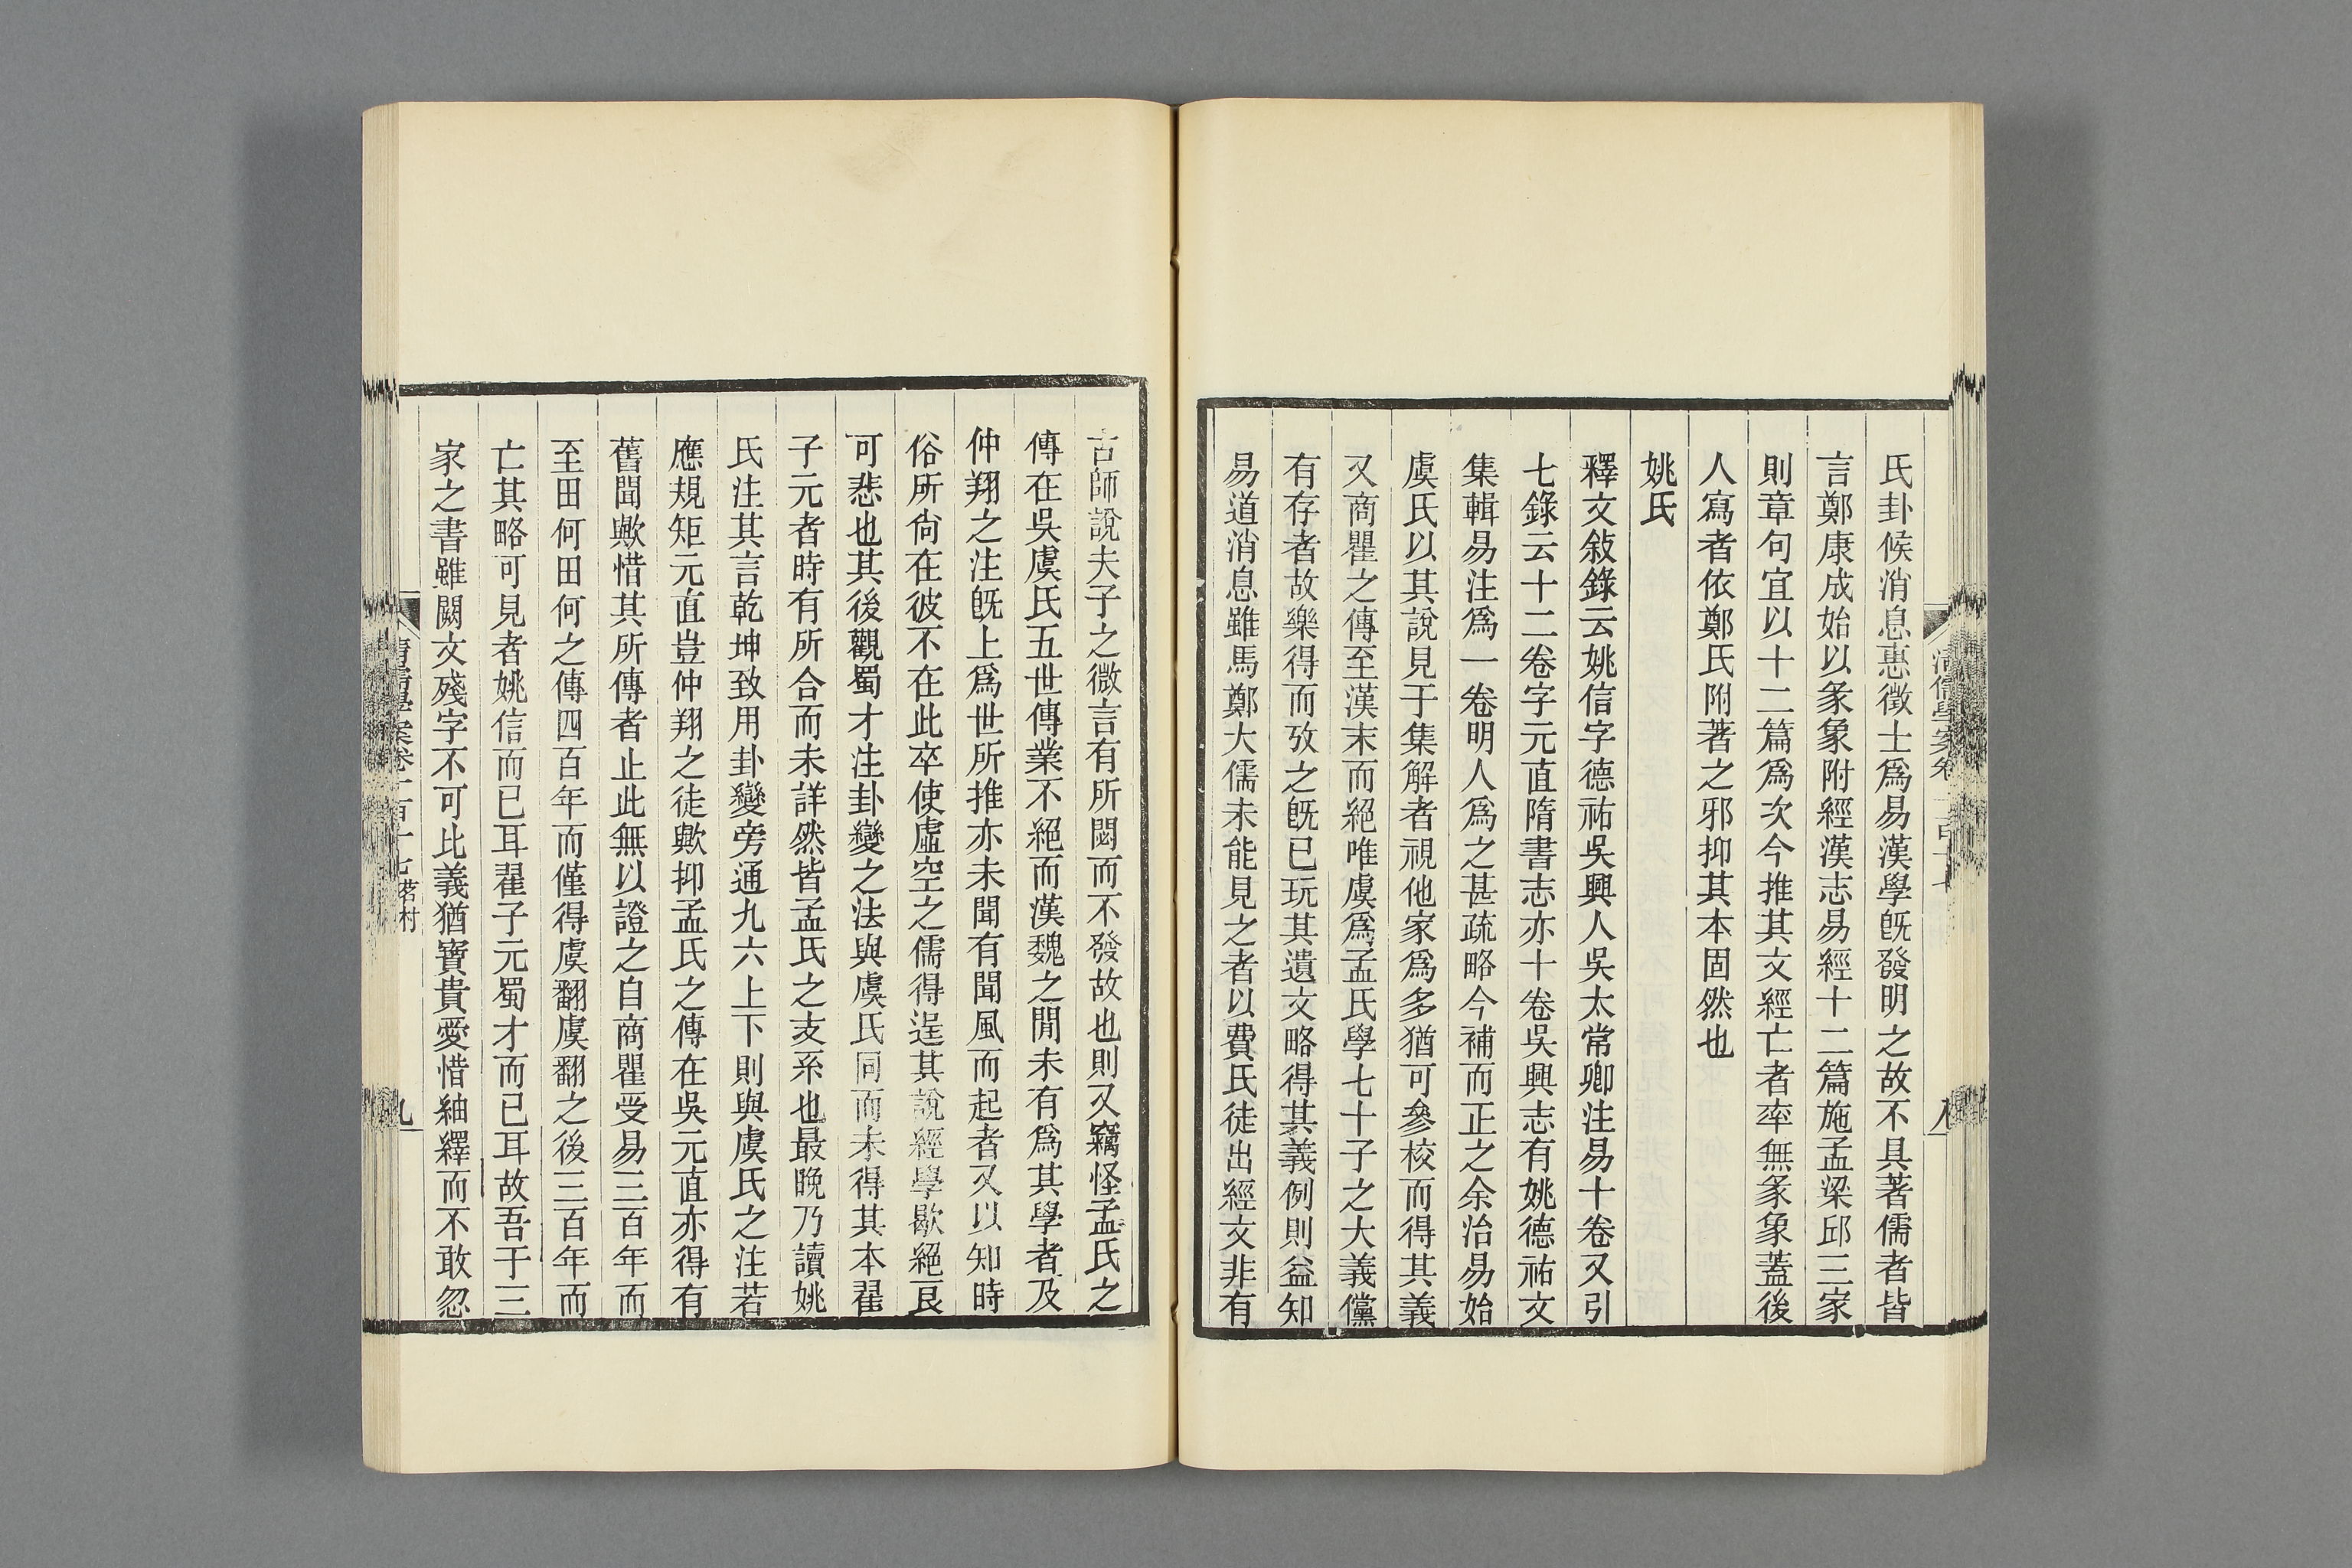 氏卦候消息惠徵士爲易漢學旣發明之故不具著儒者皆
言鄭康成始以彖象附經漢志易經十二篇施孟梁邱三家
則章句宜以十二篇爲次今推其文經亡者率無彖象蓋後
人寫者依鄭氏附著之邪抑其本固然也
姚氏
釋文敍錄云姚信字德祐吳興人吳太常卿注易十卷又引
七錄云十二卷字元直隋書志亦十卷吳興志有姚德祐文
集輯易注爲一卷明人爲之甚疏略今補而正之余治易始
虞氏以其說見于集解者視他家爲多猶可參校而得其義
又商瞿之傳至漢末而絕唯虞爲孟氏學七十子之大義儻
有存者故樂得而攷之旣已玩其遺文略得其義例則益知
易道消息雖馬鄭大儒未能見之者以費氏徒出經文非有
古師說夫子之微言有所閟而不發故也則又竊怪孟氏之
傳在吳虞氏五世傳業不絕而漢魏之閒未有爲其學者及
仲翔之注旣上爲世所推亦未聞有聞風而起者又以知時
俗所尙在彼不在此卒使虛空之儒得逞其說經學歇絕良
可悲也其後觀蜀才注卦變之法與虞氏同而未得其本翟
子元者時有所合而未詳然皆孟氏之支系也最晚乃讀姚
氏注其言乾坤致用卦變旁通九六上下則與虞氏之注若
應規矩元直豈仲翔之徒歟抑孟氏之傳在吳元直亦得有
舊聞歟惜其所傳者止此無以證之自商瞿受易三百年而
至田何田何之傳四百年而僅得虞翻虞翻之後三百年而
亡其略可見者姚信而已耳翟子元蜀才而已耳故吾于三
家之書雖闕文殘字不可比義猶寶貴愛惜紬繹而不敢忽
清儒學案卷一百十七 茗村
九